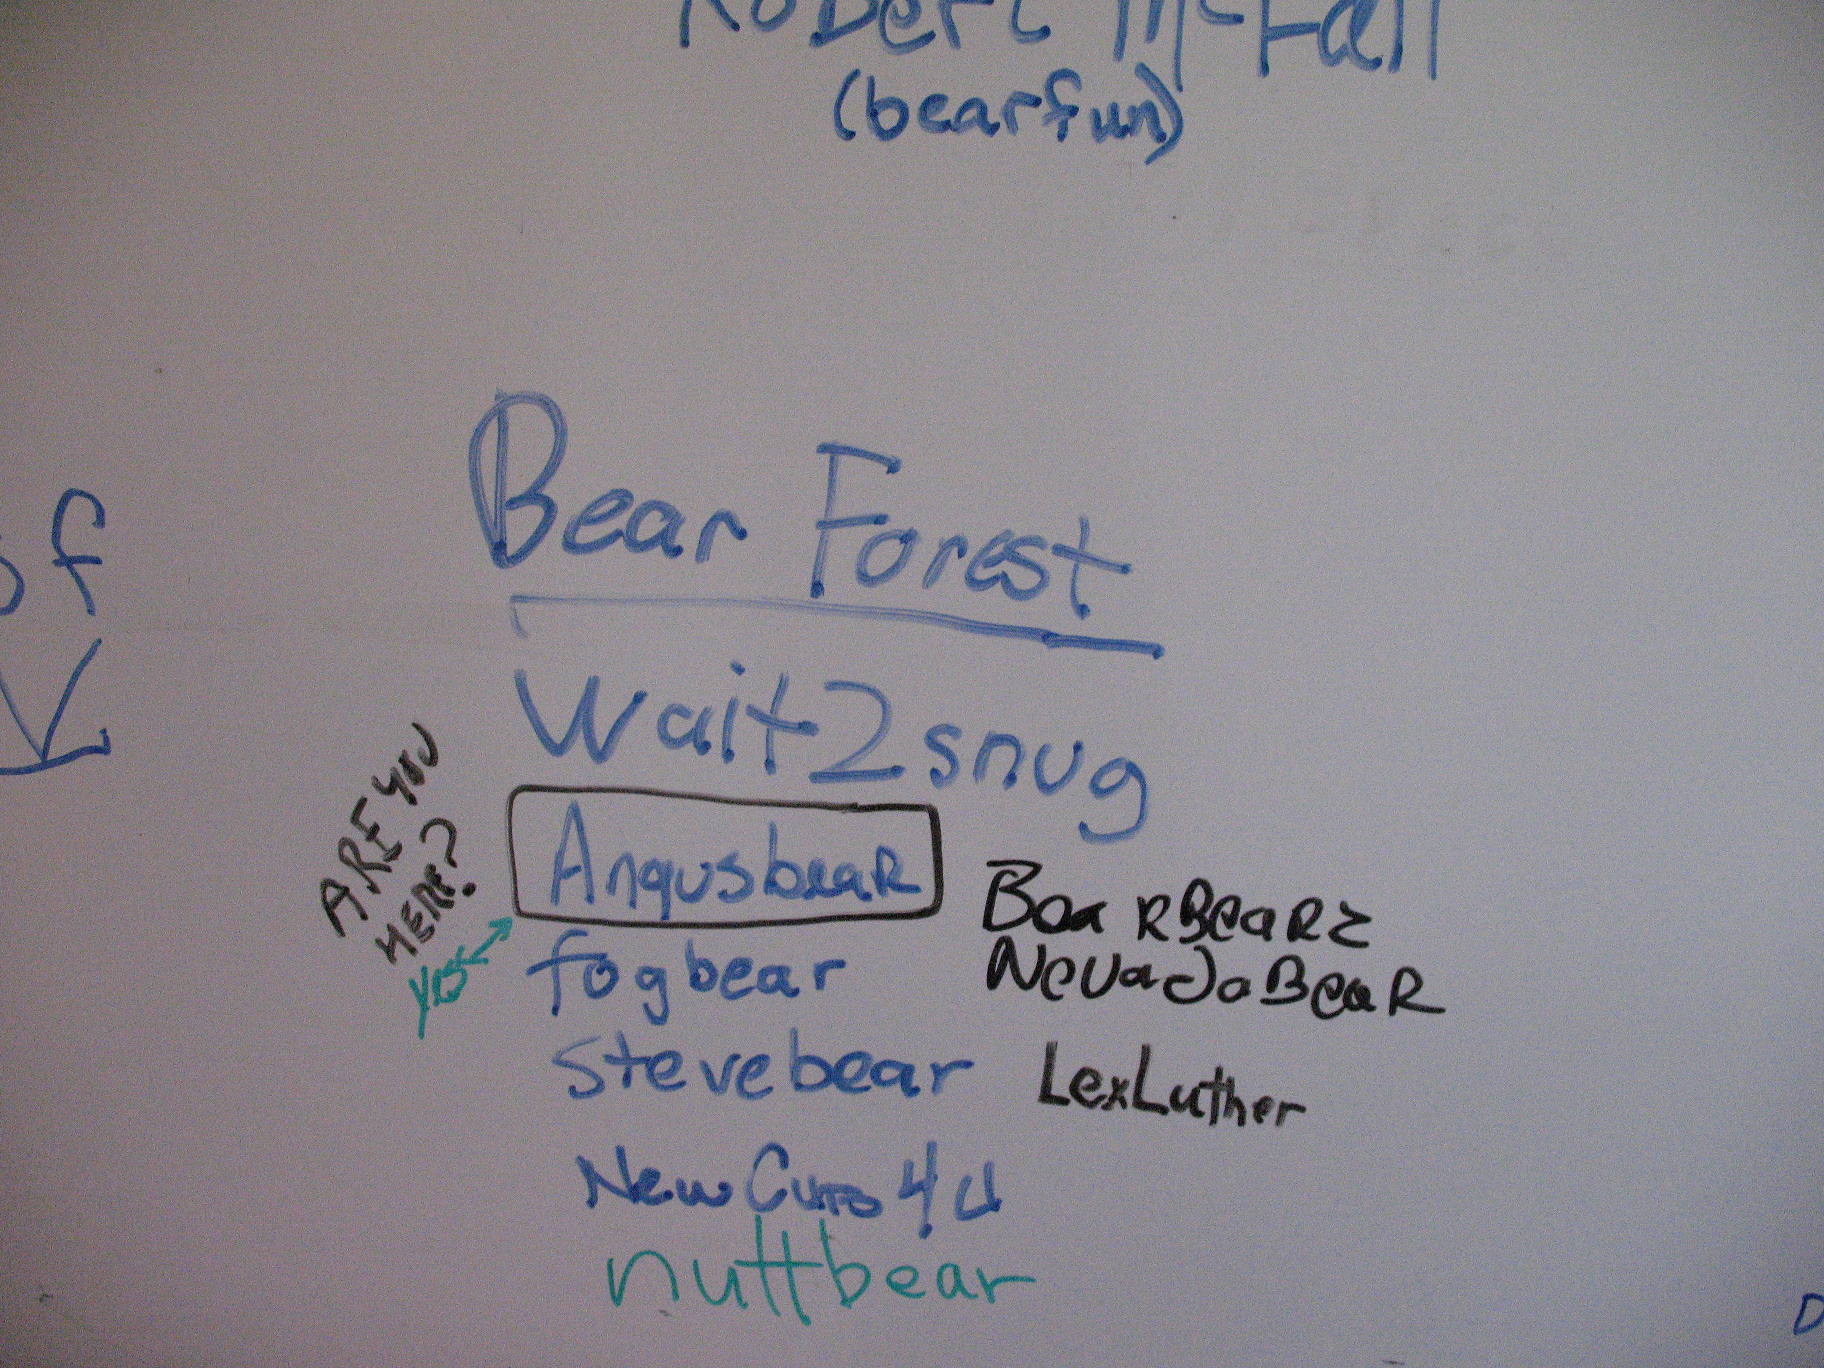 Robert McFall
(bearfun)
of
Bear Forest
Wait2snug
ARE YOU
HERE?
Yes
Angusbear
fogbear
stevebear
NewCuts4U
nuttbear
BoarBearz
NevadaBear
LexLuther